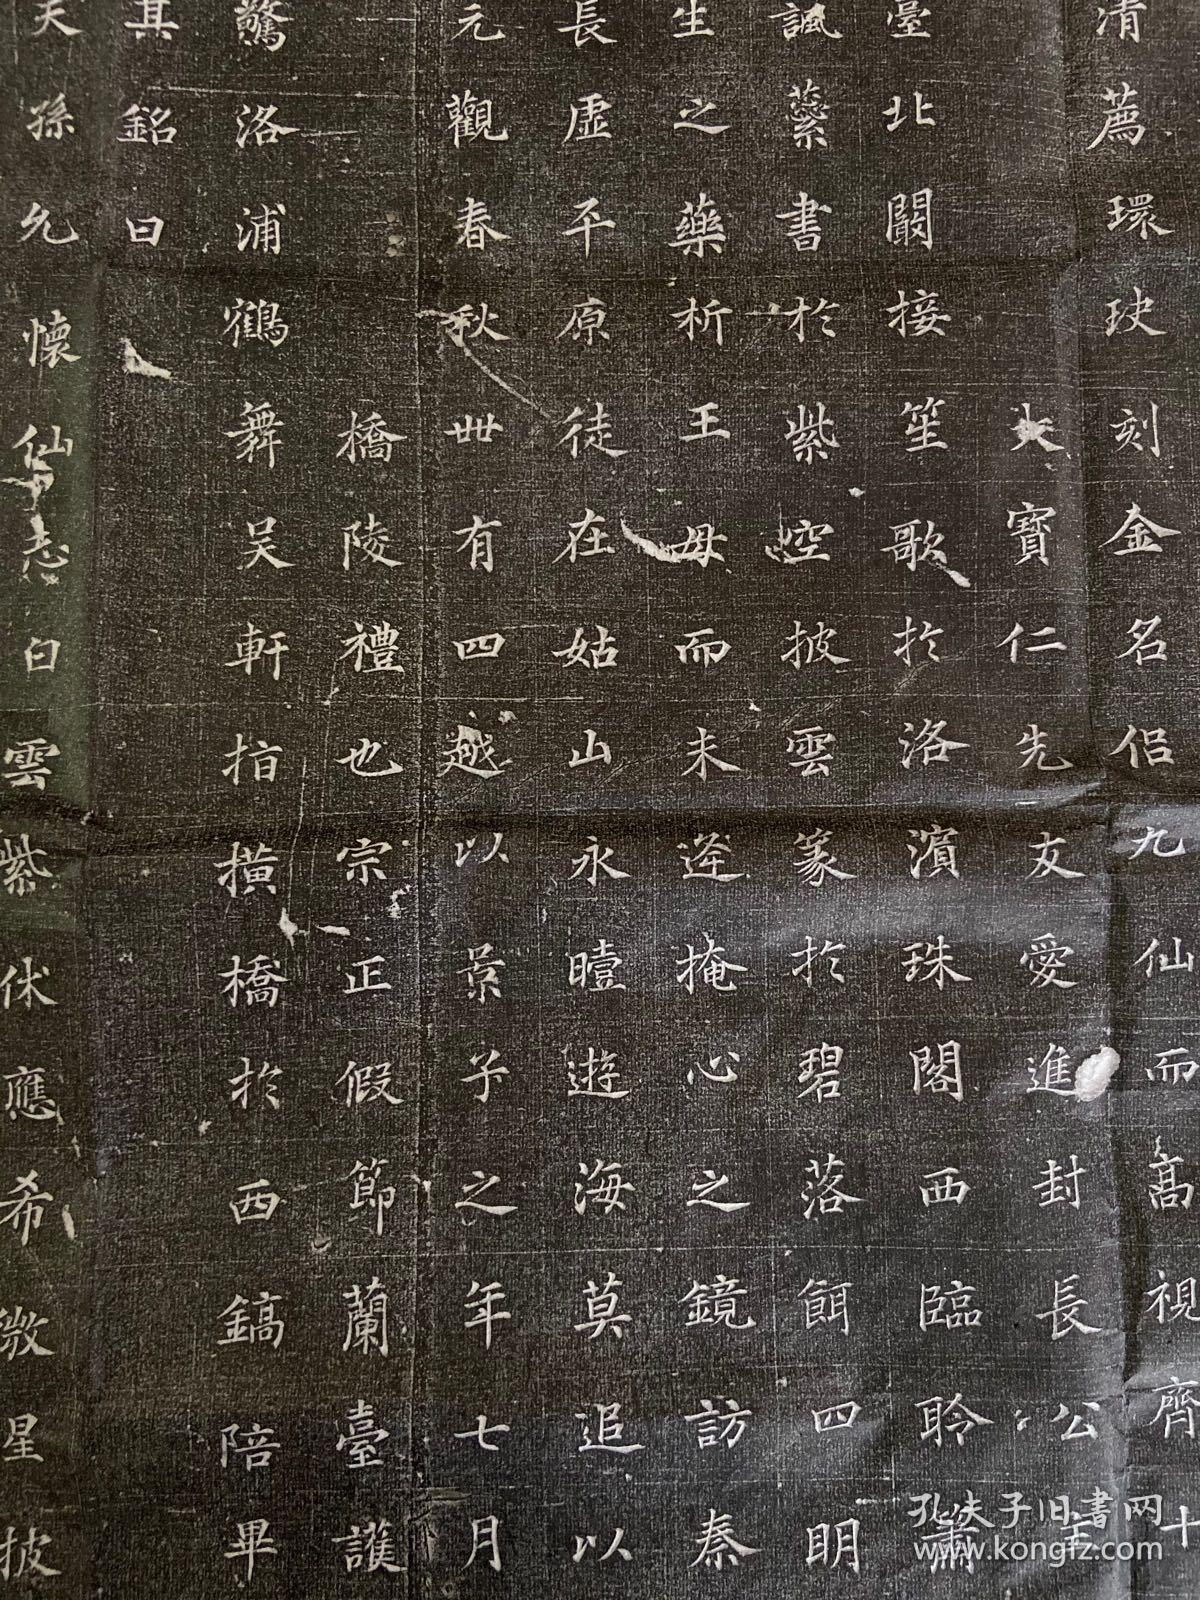 清薦環玦刻金名侶九仙而高視齊十
大寶仁先友愛進封長公主
臺北闕接笙歌於洛濵珠閣西臨聆簫
諷蘂書於紫空披雲篆於碧落餌四明
生之藥析王母而未逄掩心之鏡訪秦
長虛平原徒在姑山永曀遊海莫追以
元觀春秋丗有四越以景子之年七月
橋陵禮也宗正假節蘭臺護
驚洛浦鶴舞吴軒指横橋於西鎬陪畢
其銘曰
天孫允懷仙志白雲紫伏應希微星披
孔夫子旧书网
www.kongfz.com